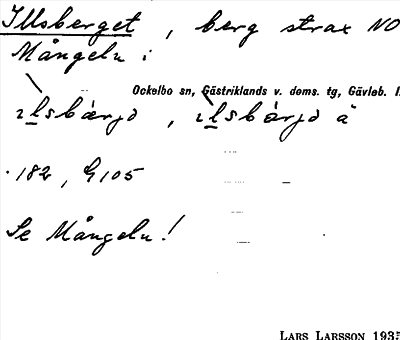 Illsberget, berg strax NO
Mångeln i
Ockelbo sn, Gästriklands v. doms. tg, Gävleb. l.
ɩlsbærjə, ɩlsbárjə å
182, G105
Se Mångeln!
LARS LARSSON 1935